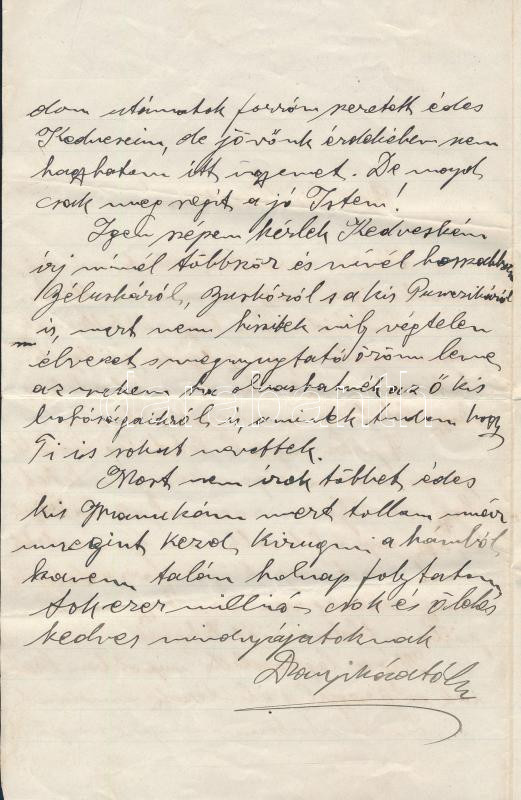 dom utánnatok forrón szeretett édes
Kedveseim, de jövőnk érdekében nem
hagyhatom itt ügyemet. De majd
csak meg segít a jó Isten!
Igen szépen kérlek Kedveském
írj minél többször és minél hosszabban
Béluskáról, Zuskóról s a kis
is, mert nem hiszitek mily végtelen
élvezet s megnyugtató öröm lenne
az nekem ha olvashatnék az ő kis
bohóságaikról is, aminek tudom hogy
Ti is sokat nevettek.
Most nem írok többet édes
kis Mamukám mert tollam már
megint kezd kirugni a hámból,
hanem talán holnap folytatom
Sokezer millió csók és ölelés
kedves mindnyájatoknak